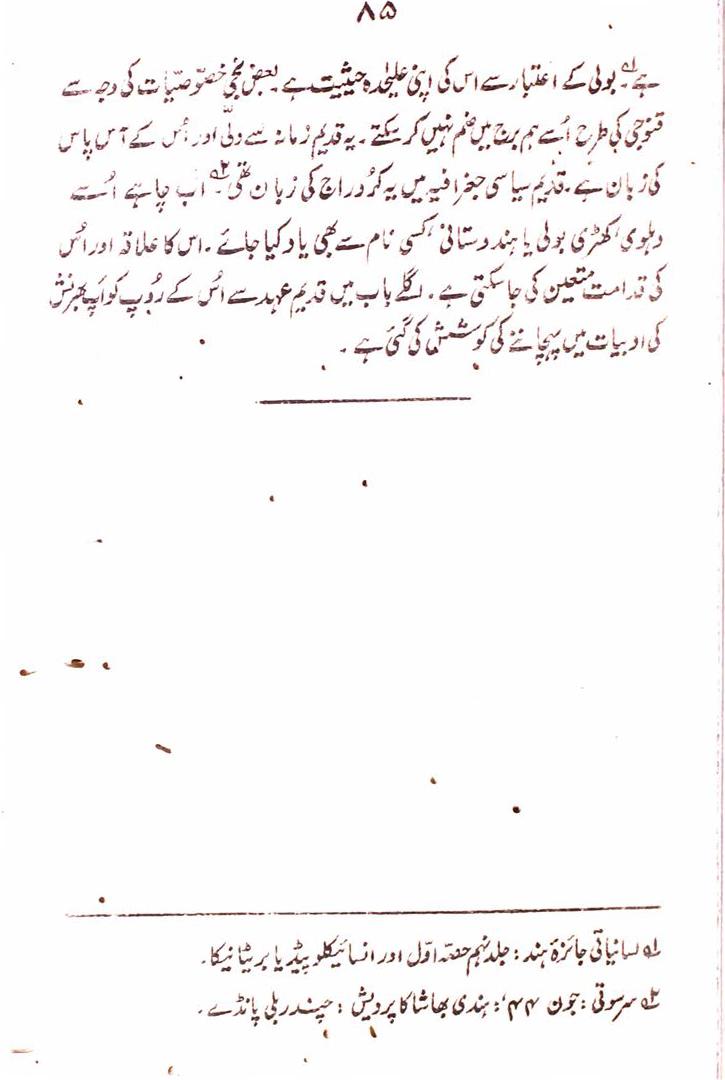 ۸۵
ہے ؎۱۔ بولی کے اعتبار سے اس کی اپنی علیٰحدہ حیثیت ہے۔ بعض نجی خصوصیّات کی وجہ سے
قنوجی کی طرح اُسے ہم برج میں ضم نہیں کر سکتے۔ یہ قدیم زمانہ سے دلّی اور اُس کے آس پاس
کی زبان ہے۔ قدیم سیاسی جغرافیہ میں یہ کُرُو راج کی زبان تھی ؎۲۔ اب چاہے اُسے
دہلوی، کھڑی بولی یا ہندوستانی، کسی نام سے بھی یاد کیا جائے۔ اس کا علاقہ اور اُس
کی قدامت متعین کی جا سکتی ہے۔ اگلے باب میں قدیم عہد سے اُس کے رُوپ کو اَپ بھرنش
کی ادبیات میں پہچاننے کی کوشش کی گئی ہے۔
؎۱ لسانیاتی جائزۂ ہند: جلد نہم حصّہ اوّل اور انسائیکلوپیڈیا برٹیانیکا۔
؎۲ سرسوتی: جون ۴۴ء: ہندی بھاشا کا پرویش: چندر بلی پانڈے۔